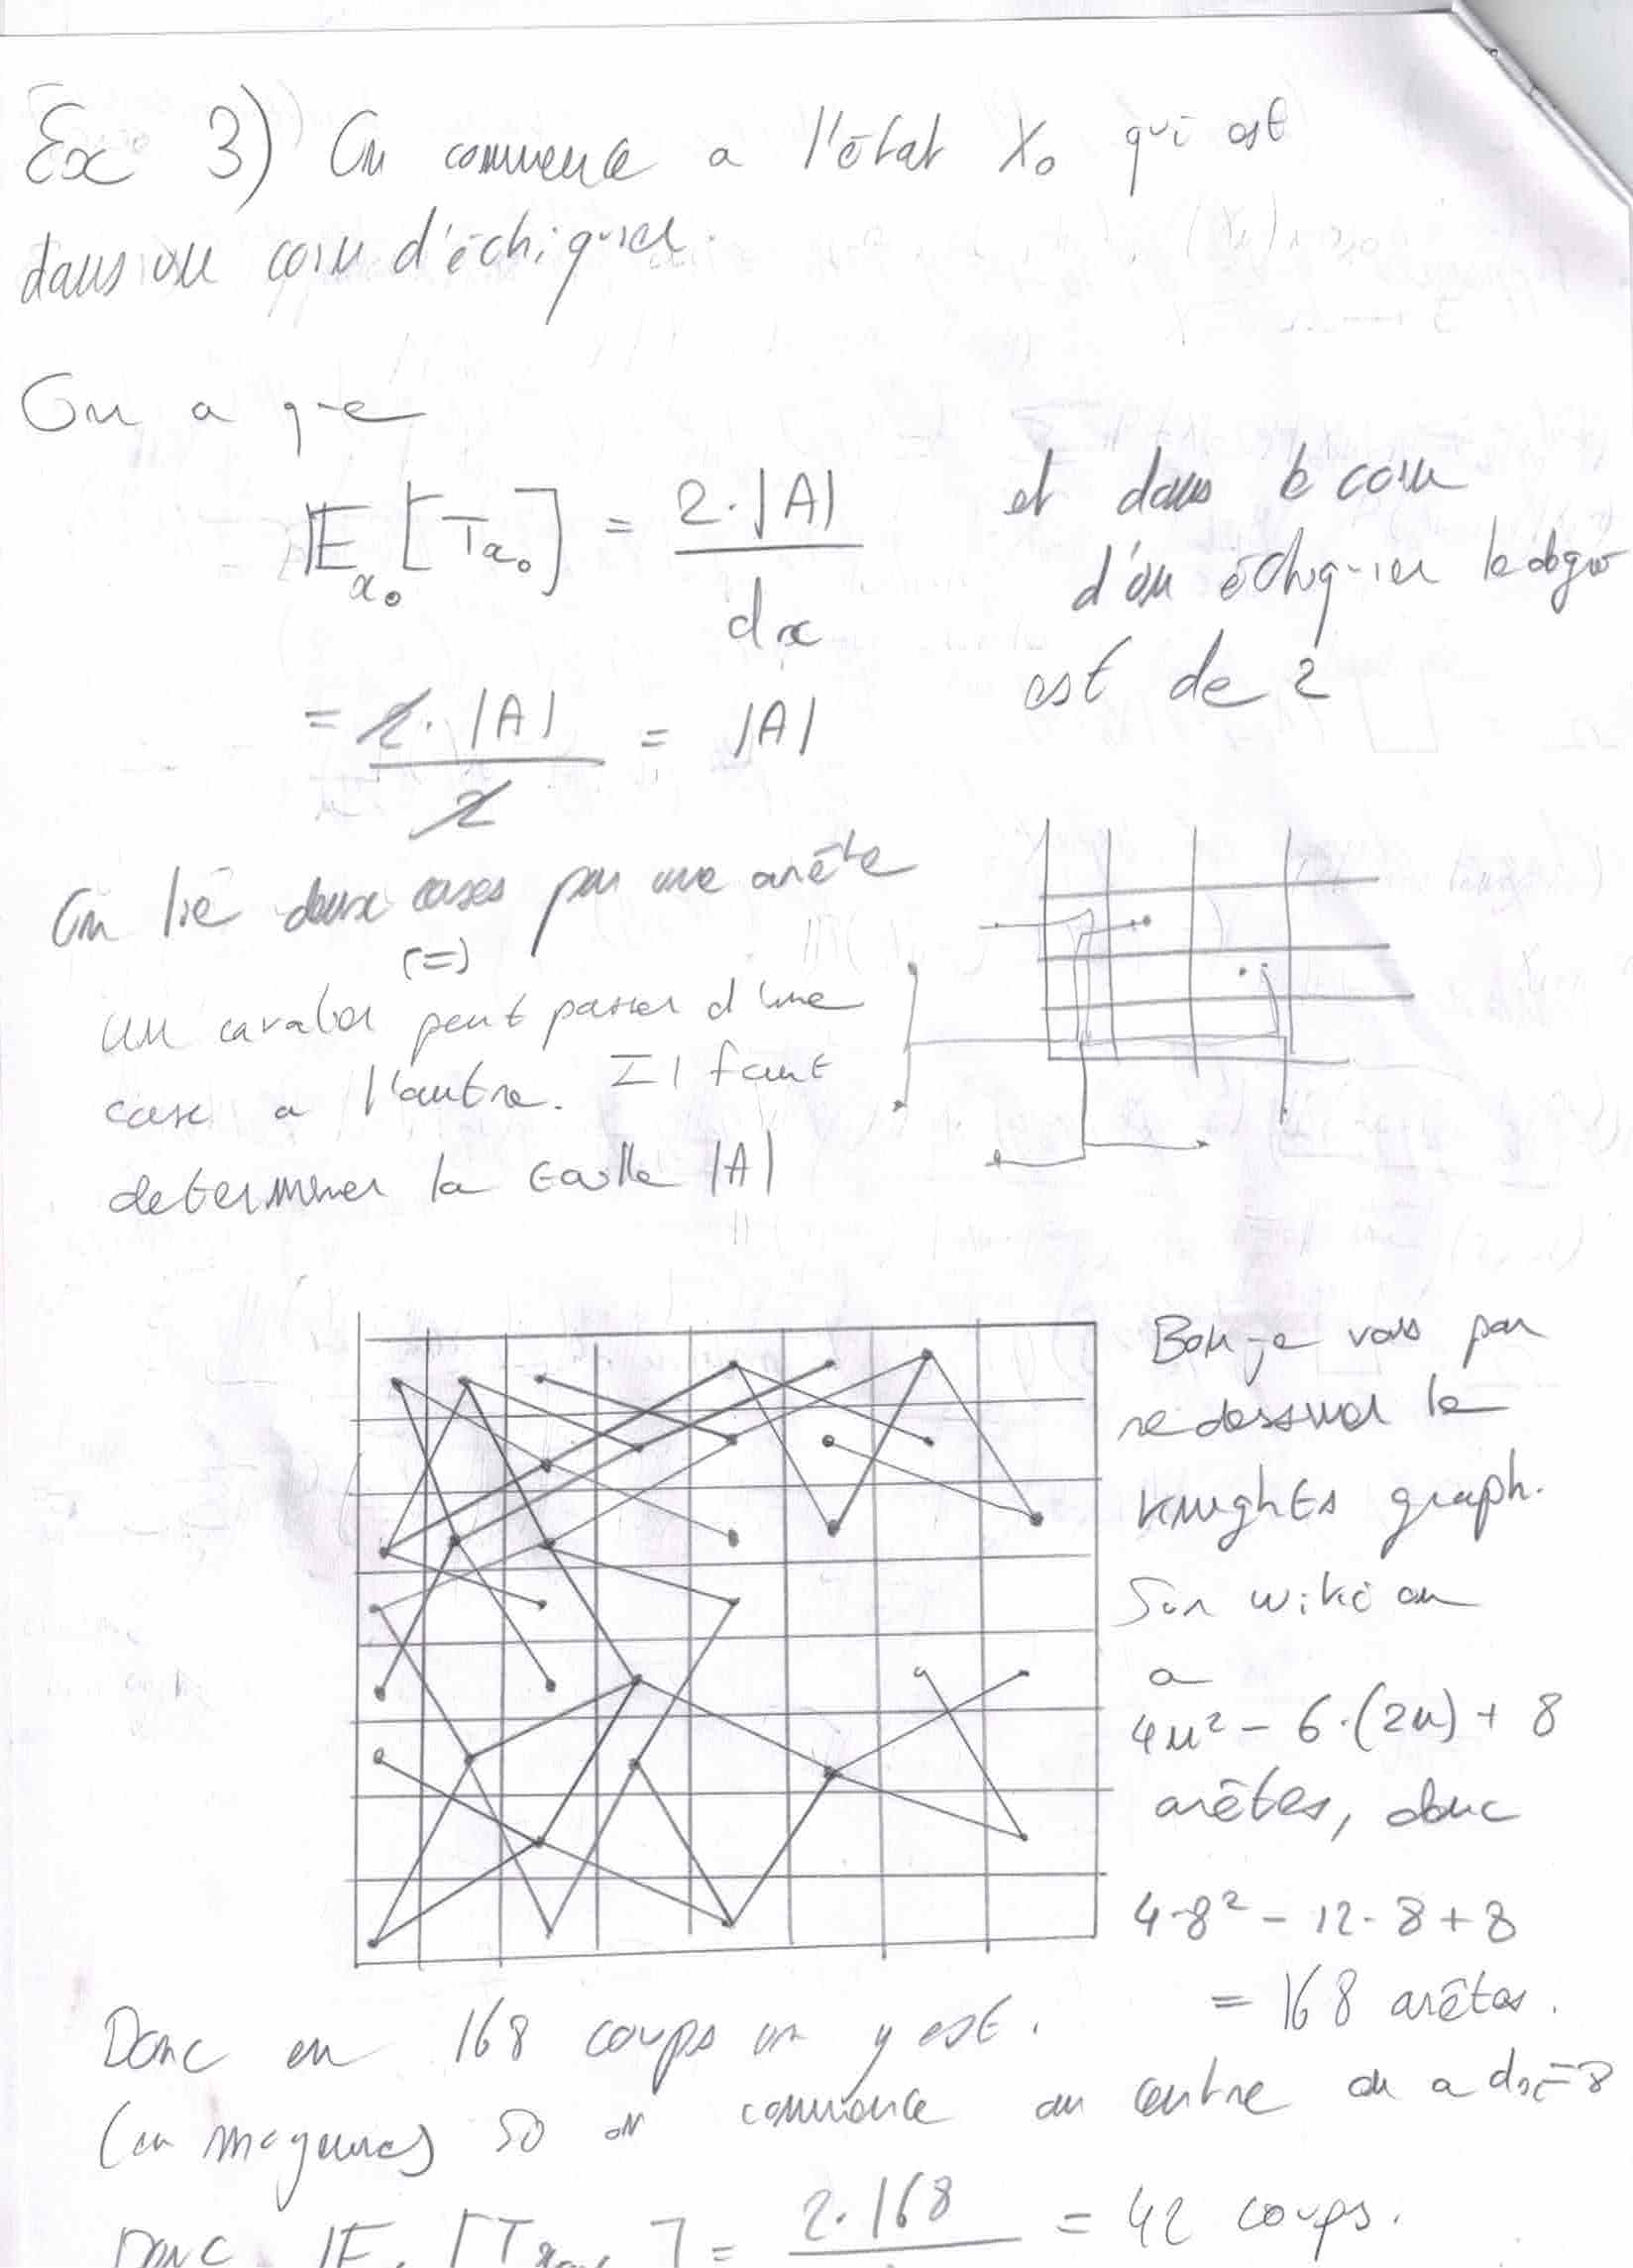 Ex 3) On commence a l'état X₀ qui est
dans un coin d'échiquier.
On a que
E_{x₀} [T_{x₀}] = 2·|A| / d_x
et dans le coin
d'un échiquier le degré
est de 2
= 2·|A| / 2 = |A|
On lie deux cases par une arête
(=)
un cavalier peut passer d'une
case a l'autre. Il faut
determiner la taille |A|
Bon je vais pas
redessiner le
knights graph.
Sur wiki on
a
4n² - 6·(2n) + 8
arêtes, donc
4·8² - 12·8 + 8
= 168 arêtes.
Donc en 168 coups on y est.
(en moyenne) Si on commence au centre on a d_x = 8
Donc E [T ] = 2·168 = 42 coups.